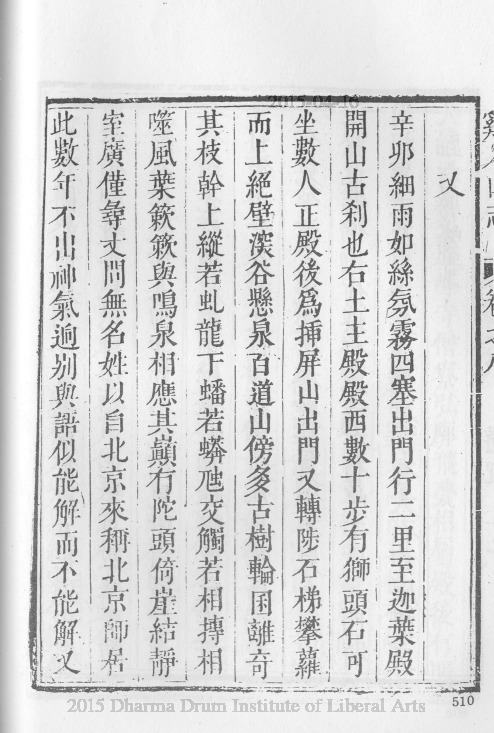 2015-04-16
又
辛卯細雨如絲氛霧四塞出門行二里至迦葉殿
開山古刹也右土主殿殿西數十步有獅頭石可
坐數人正殿後爲挿屏山出門又轉陟石梯攀蘿
而上絕壁深谷懸泉百道山傍多古樹輪囷離奇
其枝幹上縱若虬龍下蟠若蟒虺交觸若相摶相
噬風葉簌簌與鳴泉相應其巔有陀頭倚崖結靜
室廣僅尋丈問無名姓以自北京來稱北京師居
此數年不出神氣逈別與語似能解而不能解又
510
2015 Dharma Drum Institute of Liberal Arts